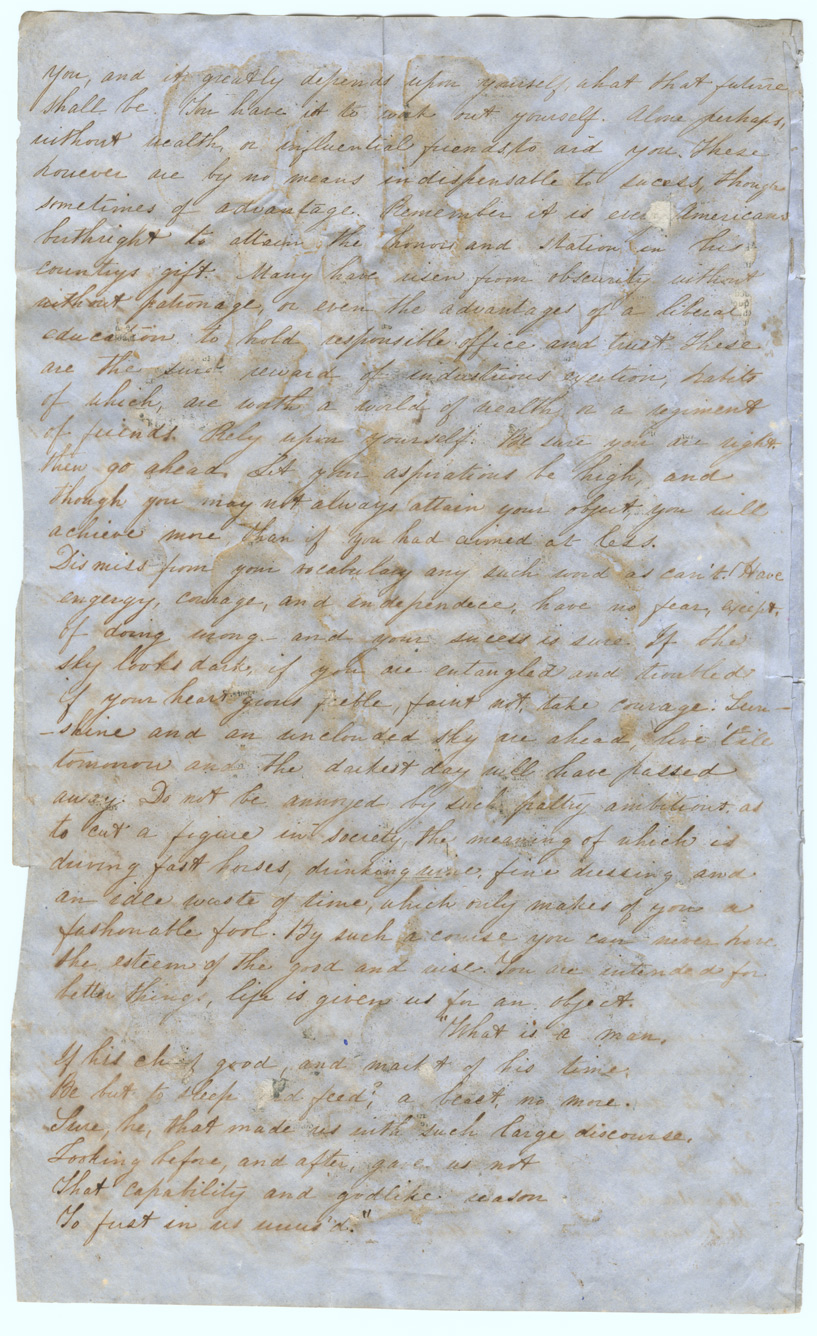 you, and it greatly depends upon yourself, what that future
shall be. You have it to work out yourself. Alone perhaps,
without wealth, or influential friends, to aid you. These
however are by no means indispensable to sucess, though
sometimes of advantage. Remember it is every Americans
birthright to attain the honors and station in his
countrys gift. Many have risen from obscurity without
without patronage, or even the advantages of a liberal
education to hold responsible office and trust. These
are the sure reward of industrious exertion, habits
of which, are worth a world of wealth, or a regiment
of friends. Rely upon yourself. Be sure you are right
then go ahead. Let your aspirations be high, and
though you may not always attain your object, you will
achieve more, than if you had aimed at less.
Dismiss from your vocabulary any such word as can't. Have
engergy, courage, and independece, have no fear, except,
of doing wrong- and your sucess is sure. If the
sky looks dark, if you are entangled and troubled
if your heart grows feeble, faint not, take courage. Sun-
-shine and an unclouded sky are ahead, live 'till
tomorrow and the darkest day will have passed
away. Do not be annoyed by such paltry ambitions. as
to cut a figure in society, the meaning of which is
driving fast horses, drinking wine, fine dressing and
an idle waste of time, which only makes of you a
fashonable fool. By such a course you can never have
the esteem of the good and wise. You are intended for
better things, life is given us for an object.
"What is a man,
If his chief good, and market of his time,
Be but to sleep and feed? a beast, no more.
Sure, he, that made us with such large discourse,
Looking before, and after, gave us not
That capability and godlike reason
To fust in us unus'd."